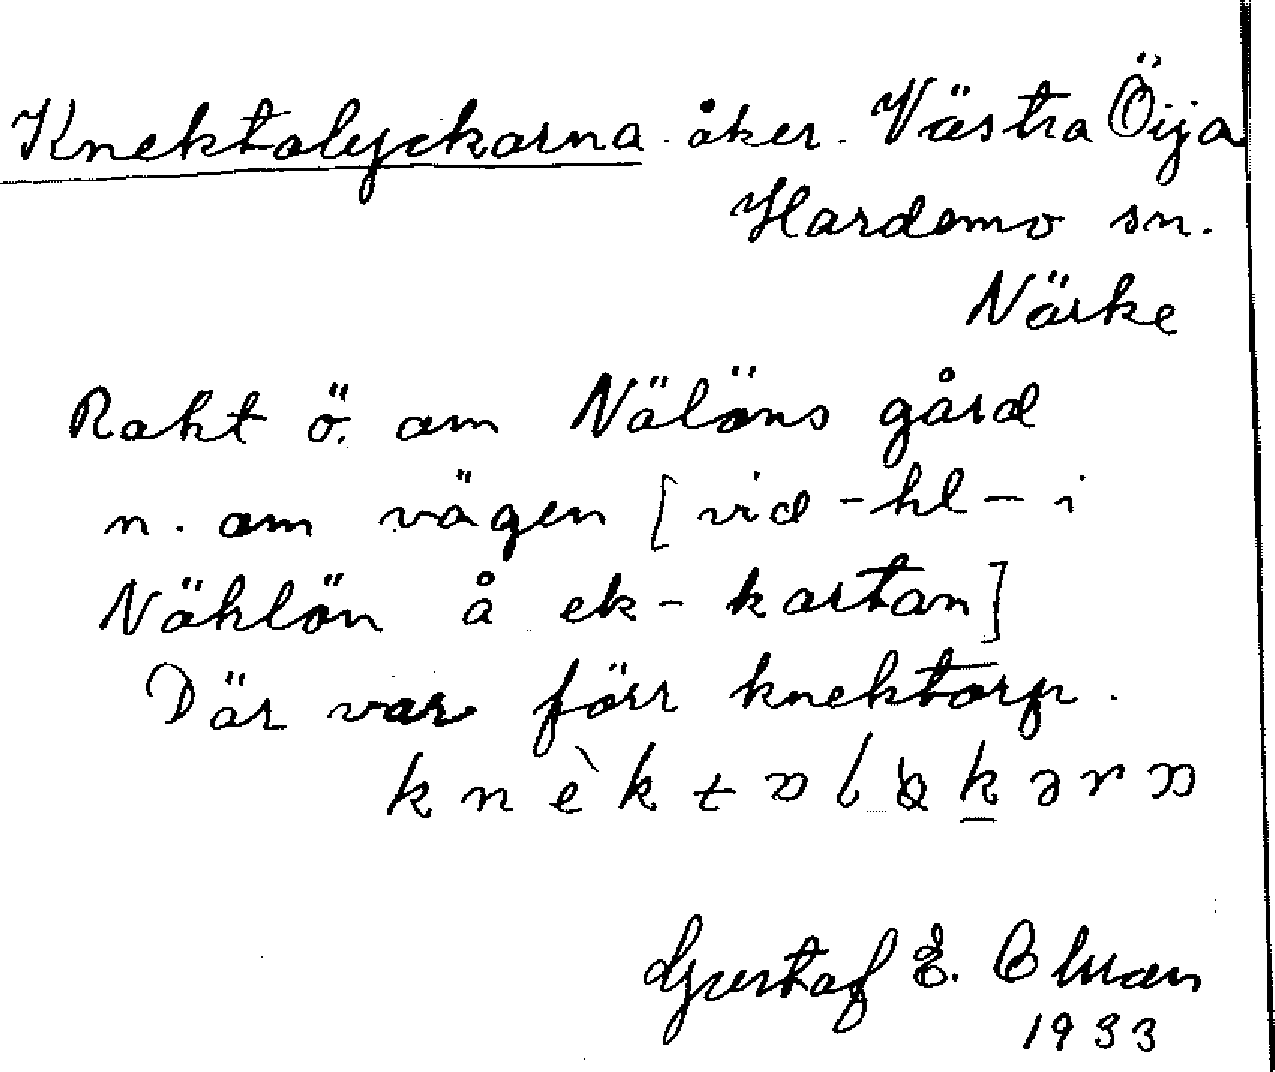 Knektalyckorna åker. Västra Öija
Hardemo sn.
Närke
Rakt ö. om Nälöns gård
n. om vägen [vid -hl- i
Nöhlön å ek-kartan]
Där var förr knektorp.
Gustaf E.
1933